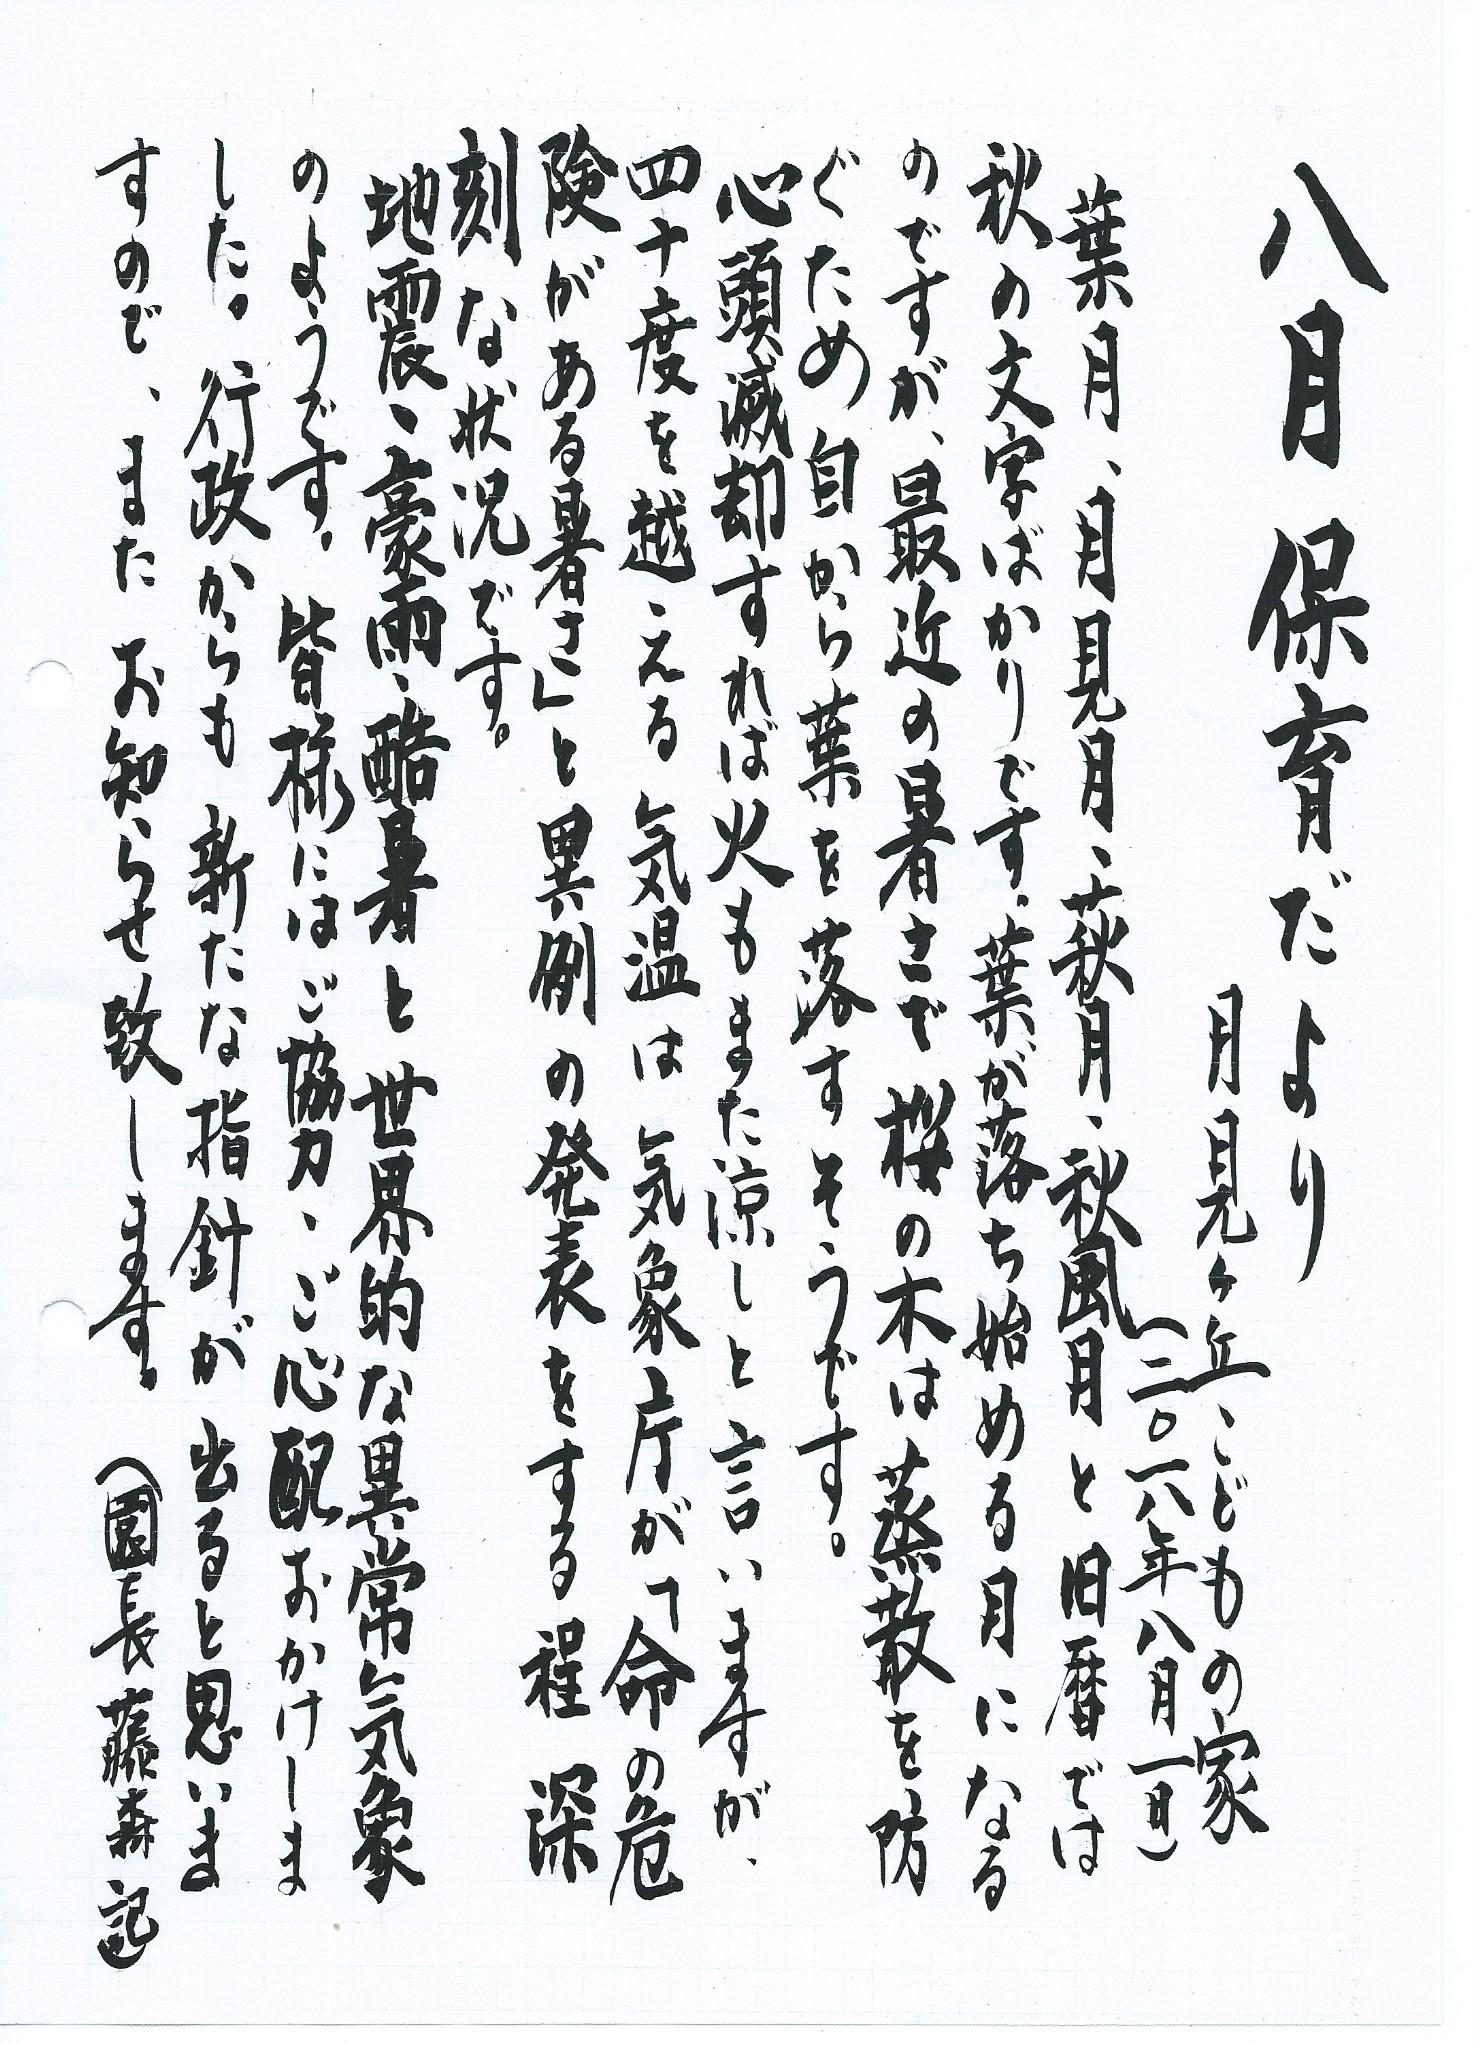 八月 保育だより
月見ヶ丘こどもの家
(二〇一八年八月一日)
葉月、月見月、萩月、秋風月と旧暦では
秋の文字ばかりです。葉が落ち始める月になる
のですが、最近の暑さで 桜の木は 蒸散を防
ぐため 自から葉を落すそうです。
心頭滅却すれば火もまた涼しと言いますが、
四十度を越える 気温は 気象庁が「命の危
険がある暑さ」と異例の発表をする程 深
刻な状況です。
地震、豪雨、酷暑と世界的な異常気象
のようです。 皆様にはご協力、ご心配おかけしま
した。 行政からも 新たな指針が 出ると思いま
すので、また お知らせ致します。 (園長 藤森 記)